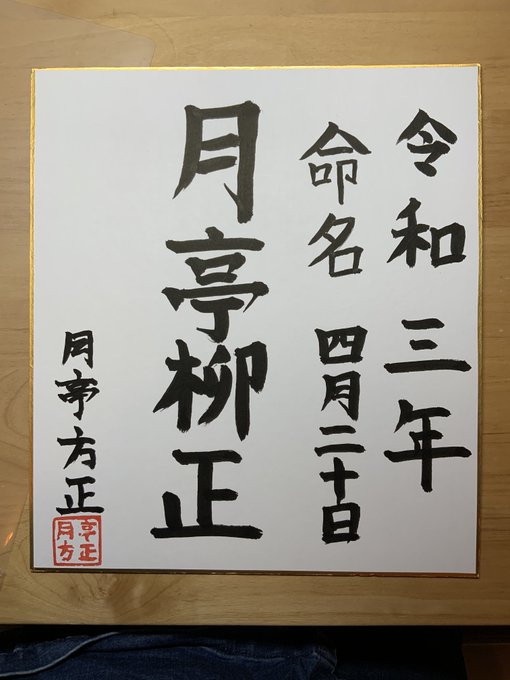 令和三年
命名 四月二十日
月亭柳正
月亭方正
月亭
方正